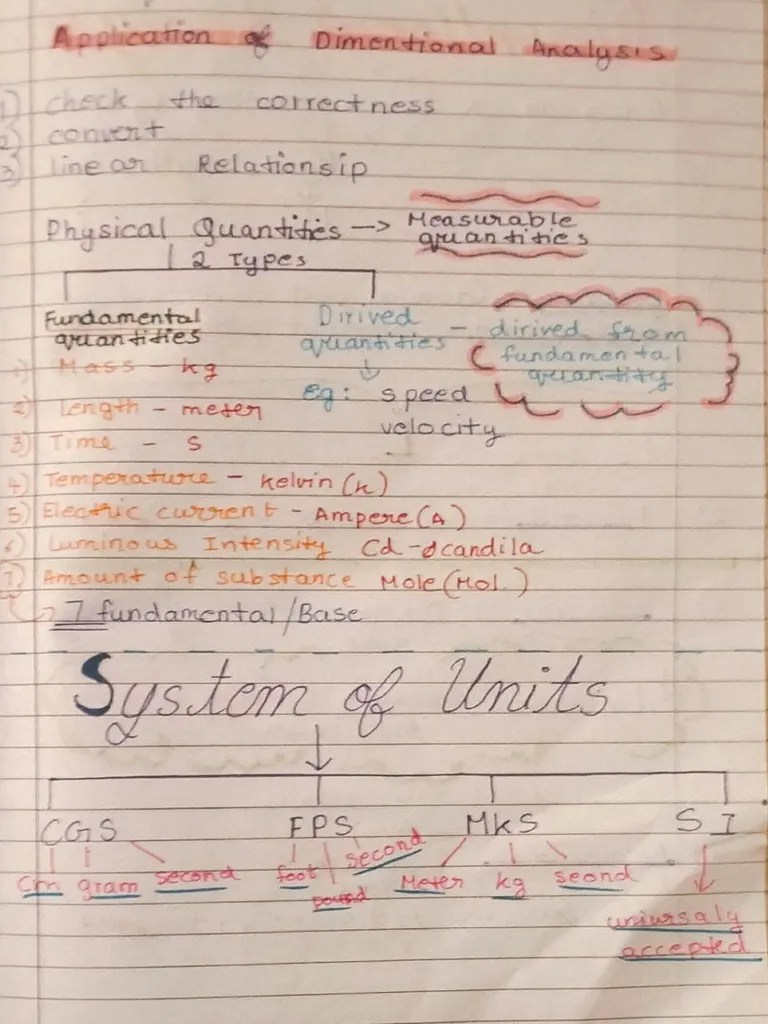 Application of Dimentional Analysis
1) check the correctness
2) convert
3) linear Relationsip
Physical Quantities -> Measurable quantities
2 Types
Fundamental quantities
Dirived quantities - dirived from fundamental quantity
1) Mass - kg
eg: speed
velocity
2) Length - meter
3) Time - S
4) Temperature - Kelvin (K)
5) Electric current - Ampere (A)
6) Luminous Intensity Cd - candila
7) Amount of substance Mole (Mol.)
7 fundamental/Base
System of Units
CGS FPS MkS SI
Cm gram second foot pound second Meter kg seond
uniursaly
accepted